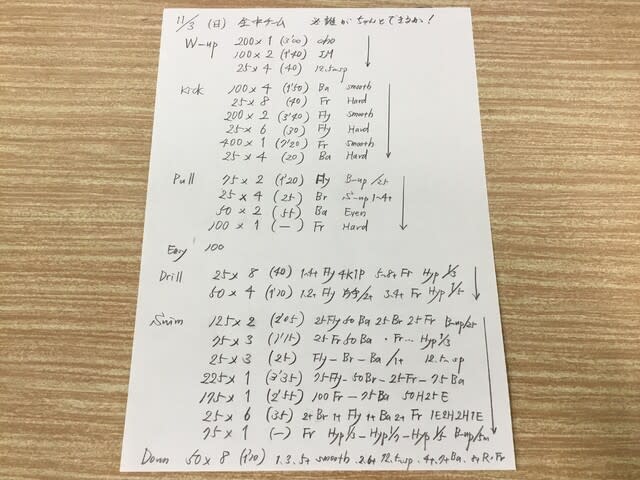 11/3 (日) 全中チーム ※誰がちゃんとできるか!
W-up 200×1 (3'00) cho
100×2 (1'40) IM
25×4 (40) 12.5m sp
Kick 100×4 (1'50) Ba smooth
25×8 (40) Fr Hard
200×2 (3'40) Fly smooth
25×6 (30) Fly Hard
400×1 (7'20) Fr smooth
25×4 (20) Ba Hard
Pull 75×2 (1'20) Fly B-up/25
25×4 (25) Br S-up 1-4t
50×2 (55) Ba Even
100×1 (—) Fr Hard
Easy 100
Drill 25×8 (40) 1-4t Fly 4K1P 5-8t Fr Hyp 1/3
50×4 (1'10) 1.2t Fly /2t 3.4t Fr Hyp 1/5
Swim 125×2 (2'05) 25Fly 50Ba 25Br 25Fr B-up/25
75×3 (1'15) 25Fr 50Ba ・Fr… Hyp 1/3
25×3 (25) Fly-Br-Ba/1t 12.5m sp
225×1 (3'35) 75Fly-50Br-25Fr-75Ba
175×1 (2'55) 100Fr-75Ba 50H25E
25×6 (35) 2tBr 1tFly 1tBa 2tFr 1E2H2H1E
75×1 (—) Fr Hyp 1/3-Hyp 1/7-Hyp 1/5 B-up/5m
Down 50×8 (1'10) 1.3.5t smooth .2.6t 12.5m sp .4t.7tBa .8t R・Fr